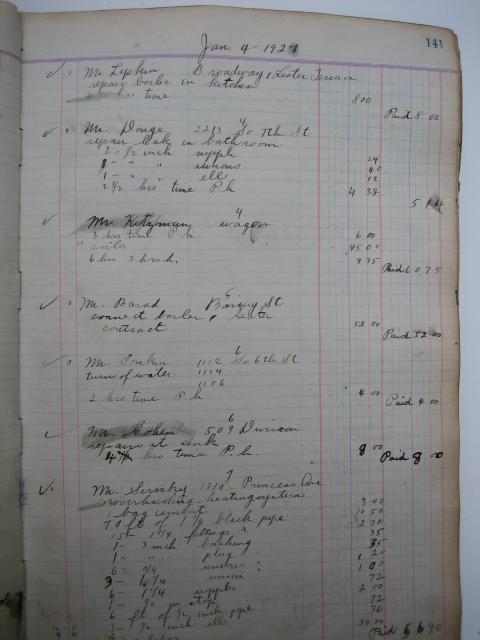 141
Jan. 4 - 1921
Mr Lipkin Broadway & Lester Terrace
repair boiler in kitchen
hrs time 8 00
Paid 8 00
4
Mr. Donge 2213 So 7th St
repair leak in bathroom
2 - 1/2 inch nipple 24
1 - " " unions 40
1 - " " ell 12
2 1/2 hrs time P.h 4 38
5 14
4
Mr Kitzman wagon
3 hrs time P.h 6 00
" coils 45 00
6 hrs 3 hrs h. 9 75
Paid 60 75
5
Mr. Barad Boring St
connect boiler & heater
contract 52 00
Paid 52 00
6
Mr. 1112 So 6th St
turn of water 1114
1106
2 hrs time P.h 4 00
Paid 4 00
6
Mr. Cohen 509 Division
repairs at sink
4 hrs time P.h. 8 00
Paid 8 00
7
Mr. 1310 Princess Ave
overhauling heating system
1 bag cement 3 00
70 ft of 1 1/4 black pipe 10 50
15 - 1 1/4 fittings " 2 70
1 - 3 inch bushing 35
1 - " " plug 35
6 - 3/4 unions 1 20
3 - 1 1/4 union 1 00
6 - 1 1/4 nipples 72
1 - 1/2 in stop 2 00
6 ft of 1/2 inch pipe 72
3 - 1/2 inch ells 36
34 00
Paid 56 90